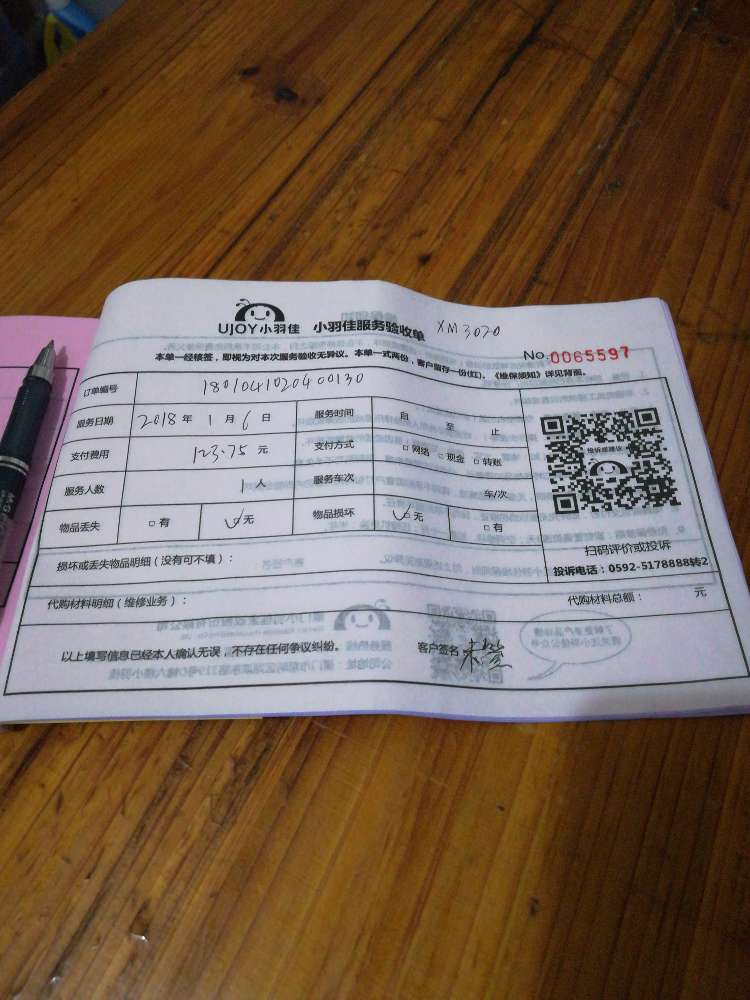 UJOY小羽佳 小羽佳服务验收单 XM3020
本单一经核签，即视为对本次服务验收无异议。本单一式两份，客户留存一份(红)。《维保须知》详见背面。
No.0065597
订单编号 180104102040 0130
服务日期 2018年1月6日 服务时间 自 至 止
支付费用 123.75元 支付方式 □网络 □现金 □转账
服务人数 1人 服务车次 车/次
物品丢失 □有 ☑无 物品损坏 ☑无 □有
投诉或建议
扫码评价或投诉
投诉电话：0592-5178888转2
损坏或丢失物品明细（没有可不填）：
代购材料明细（维修业务）： 代购材料总额： 元
以上填写信息已经本人确认无误，不存在任何争议纠纷。 客户签名